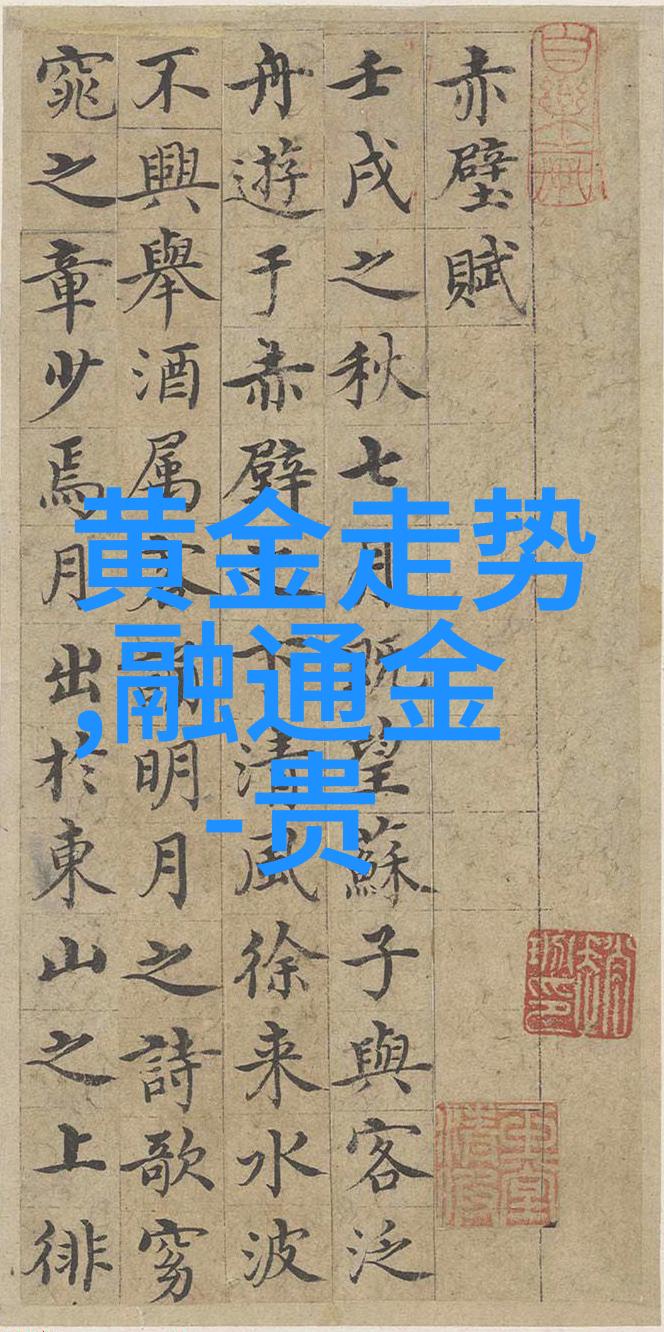 赤壁賦
壬戌之秋七月既望蘇子與客泛
舟遊于赤壁之下清風徐来水波
不興舉酒属客誦明月之詩歌窈
窕之章少焉月出於東山之上徘
黄金走势
,融通金
-贵